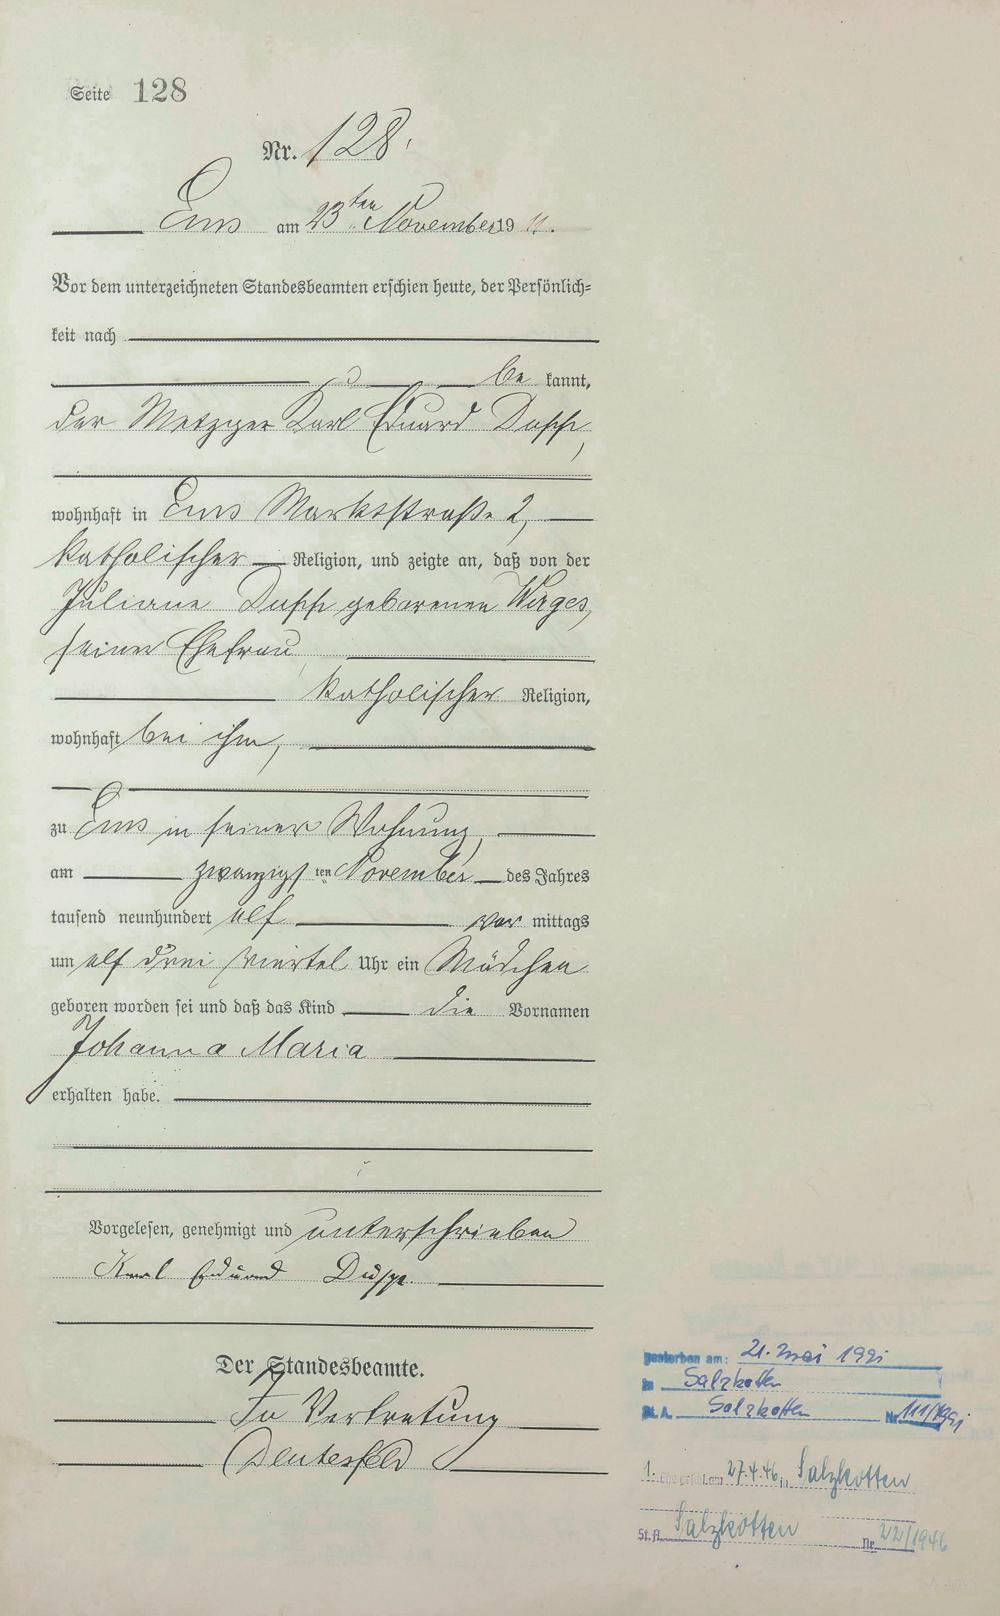 Seite 128
Nr. 128.
Ems am 23ten November 19 11.
Vor dem unterzeichneten Standesbeamten erschien heute, der Persönlich-
keit nach
be kannt,
der Metzger Karl Eduard
wohnhaft in Ems Marktstraße 2,
katholischer Religion, und zeigte an, daß von der
Juliane geborenen Wirges,
seiner Ehefrau
katholischer Religion,
wohnhaft bei ihm,
zu Ems in seiner Wohnung,
am zwanzigsten November des Jahres
tausend neunhundert elf vor mittags
um elf drei viertel Uhr ein Mädchen
geboren worden sei und daß das Kind die Vornamen
Johanna Maria
erhalten habe.
Vorgelesen, genehmigt und unterschrieben
Karl Eduard
Der Standesbeamte.
In Vertretung
gestorben am: 21. Mai 1991
in Salzkotten
St. A. Salzkotten Nr. 111/1991
1. Eheschl. am 27.4.46 in Salzkotten
St.A. Salzkotten Nr. 22/1946